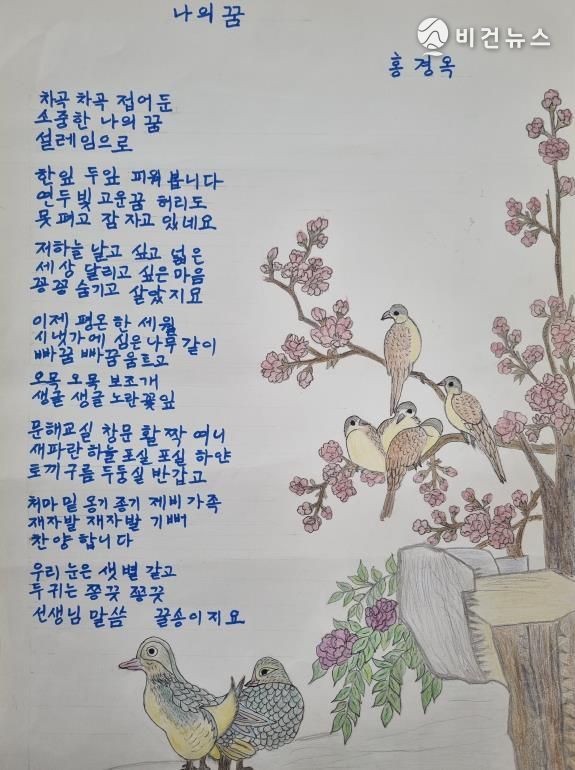 나의 꿈
비건뉴스
홍경옥
차곡 차곡 접어 둔
소중한 나의 꿈
설레임으로
한잎 두잎 피워 봅니다
연두빛 고운꿈 허리도
못펴고 잠자고 있네요
저하늘 날고 싶고 넓은
세상 달리고 싶은 마음
꽁꽁 숨기고 살았지요
이제 평온한 세월
시냇가에 심은 나무 같이
빠꿈 빠꿈 움트고
오목 오목 보조개
생글 생글 노란꽃잎
문해교실 창문 활짝 여니
새파란 하늘 포실 포실 하얀
토끼구름 두둥실 반갑고
처마 밑 옹기 종기 제비 가족
재자발 재자발 기뻐
찬양 합니다
우리 눈은 샛별 같고
두귀는 쫑긋 쫑긋
선생님 말씀 꿀송이지요